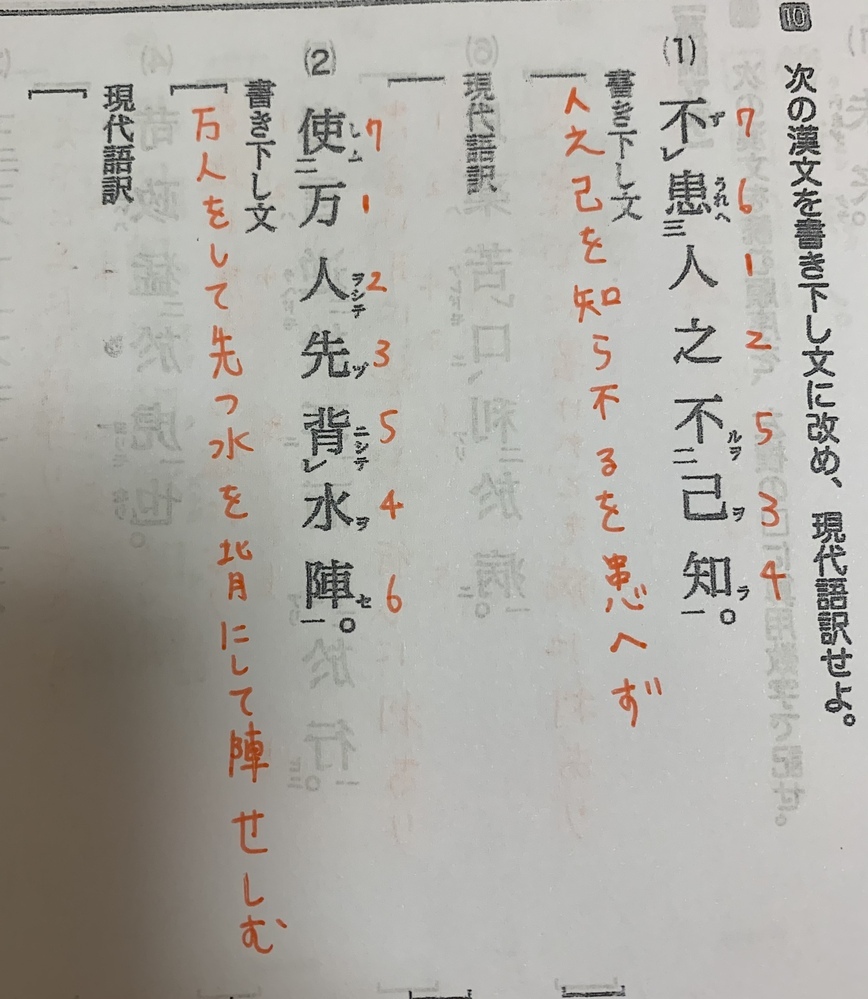 10 次の漢文を書き下し文に改め、現代語訳せよ。
(1) 不ずレ患うれへ三人之不ルヲ二己ヲ知ラ一。
7 6 1 2 5 3 4
書き下し文
人之己を知ら不るを患へず
現代語訳
(2) 使しム二万人ヲシテ先ヅ背ニシテレ水ヲ陣セ一。
7 1 2 3 5 4 6
書き下し文
万人をして先つ水を背にして陣せしむ
現代語訳